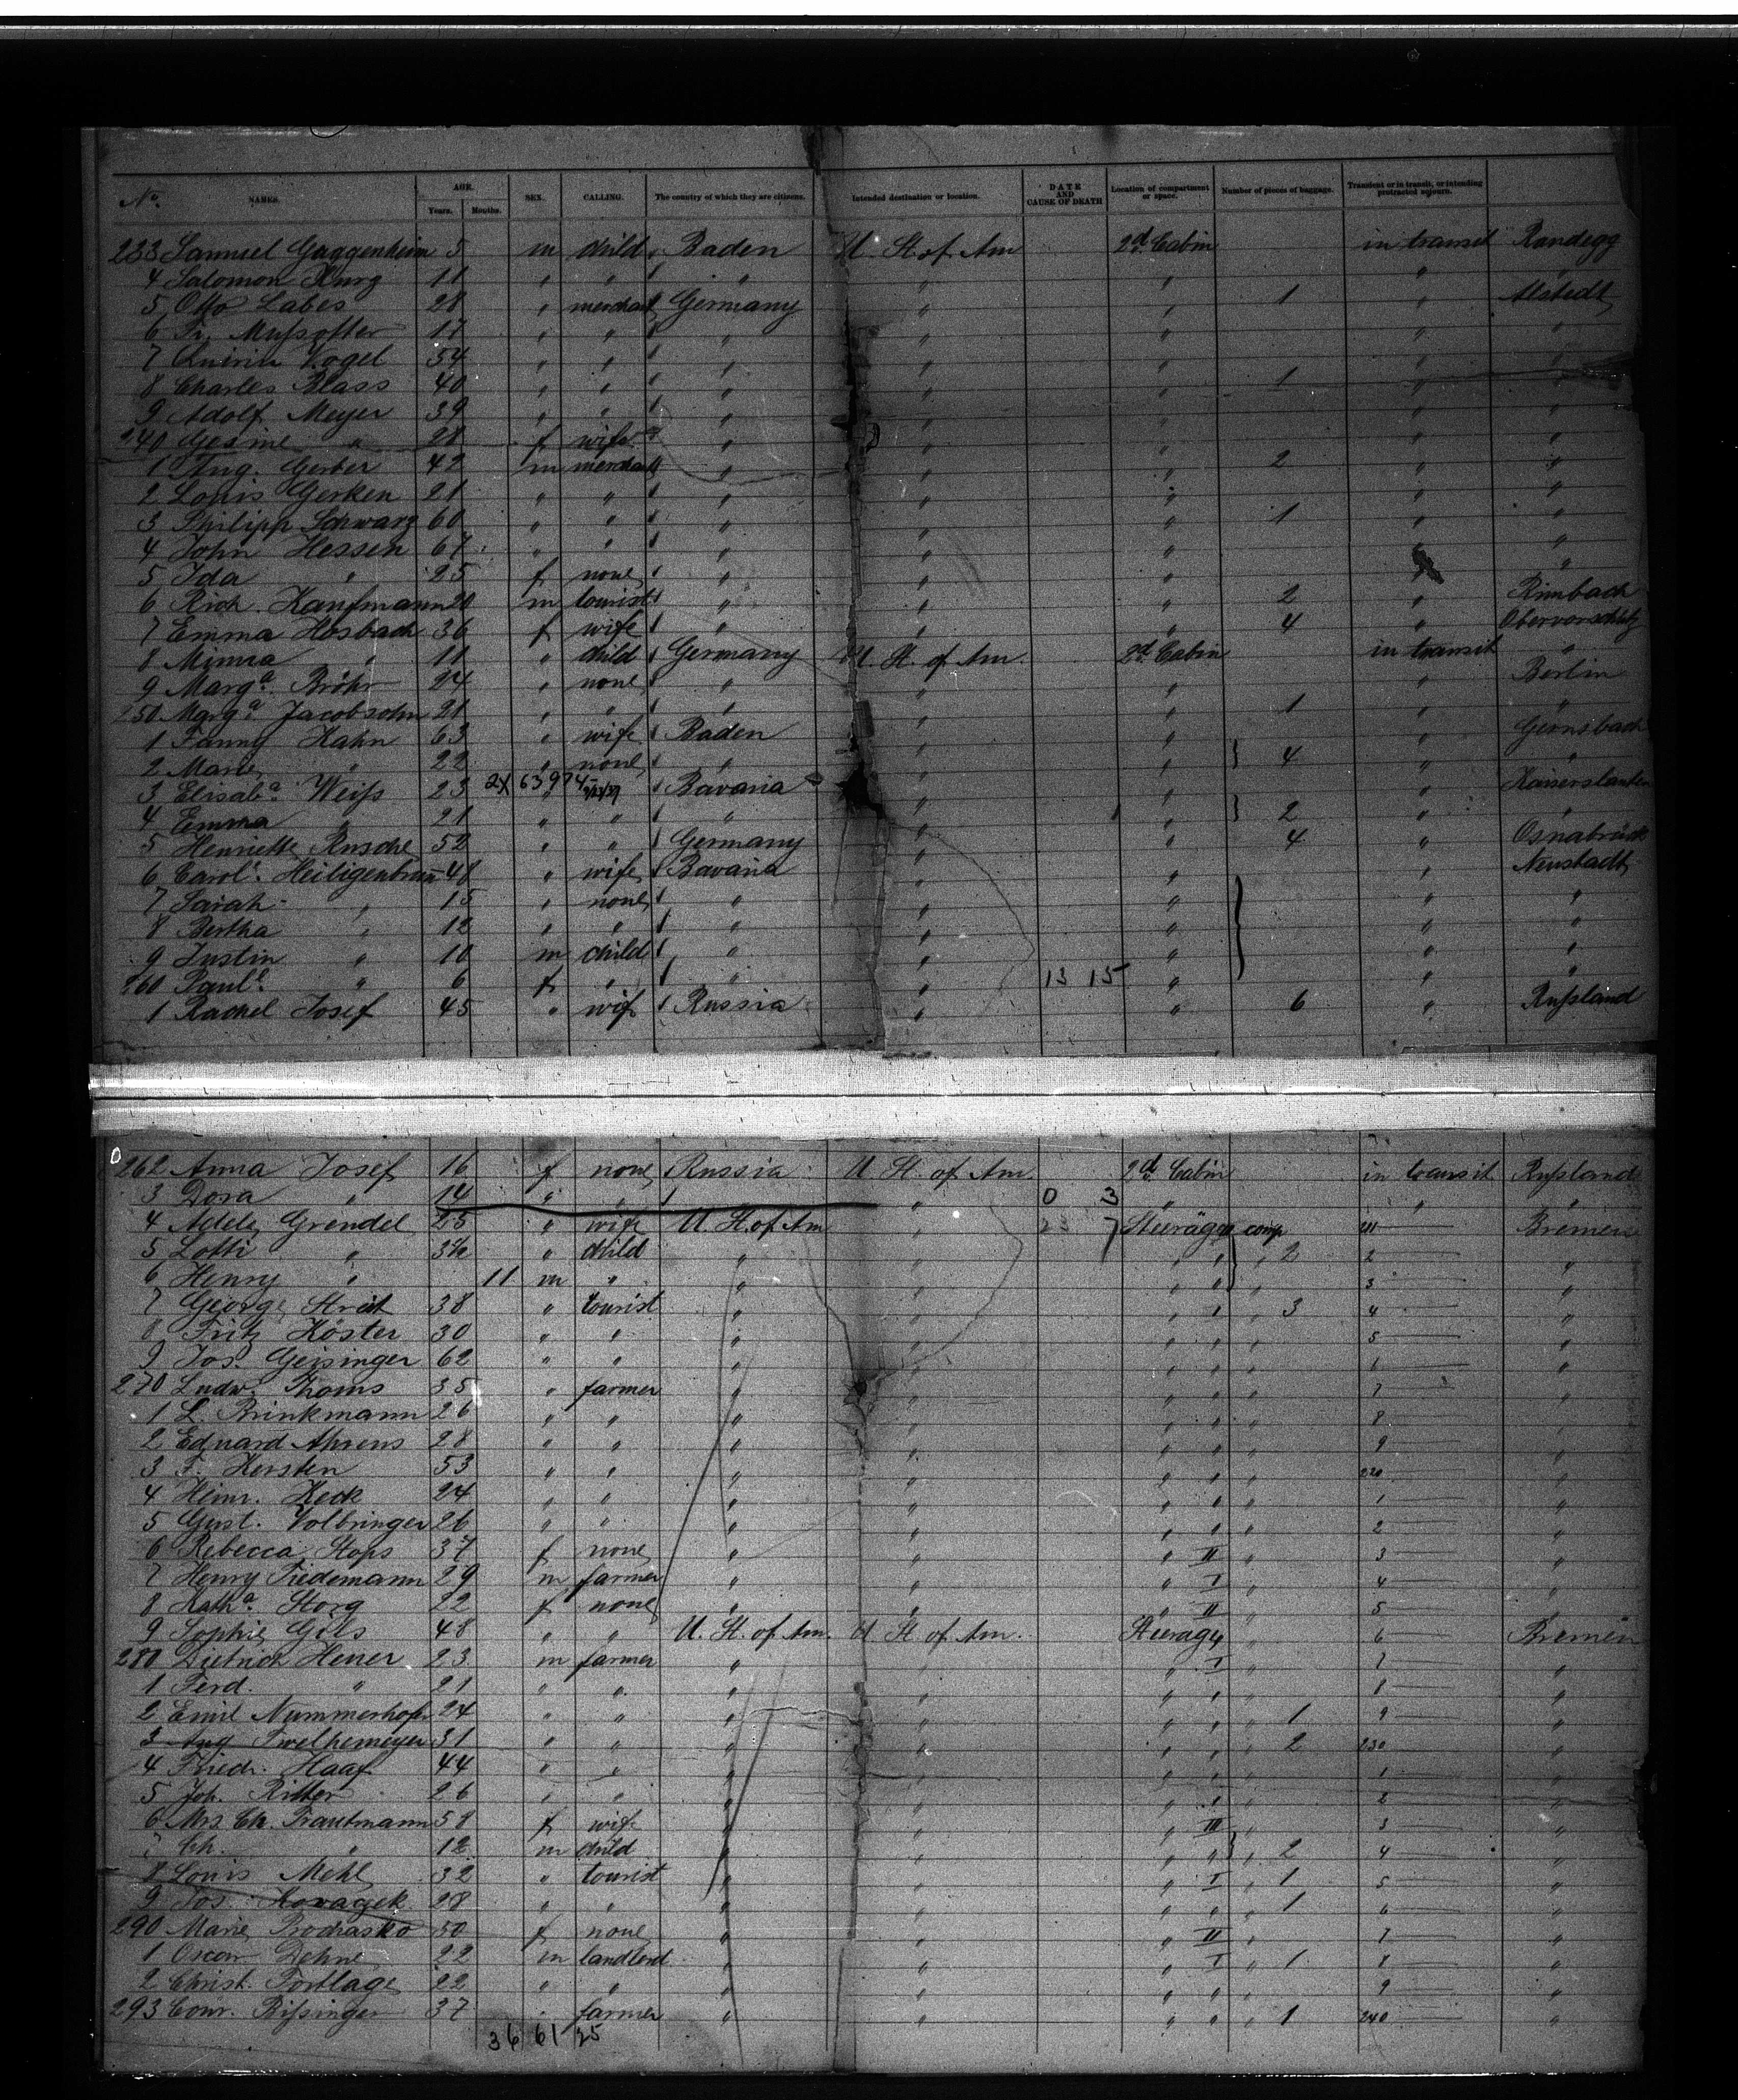 No. NAMES. AGE. Years. Months. SEX. CALLING. The country of which they are citizens. Intended destination or location. DATE AND CAUSE OF DEATH Location of compartment or space. Number of pieces of baggage. Transient or in transit, or intending protracted sojourn.
233 Samuel Guggenheim 5 m child Baden U. St. of Am 2d. Cabin in transit Randegg
4 Salomon 11 " " " " " " "
5 Otto Labes 28 " merchant Germany " " 1 " Alstedt
6 Fr. 17 " " " " " " "
7 Quirin Vogel 54 " " " " " " "
8 Charles Blass 40 " " " " " 1 " "
9 Adolf Meyer 39 " " " " " " "
240 Gesine " 28 f wife " " " " "
1 Aug. Gerber 42 m merchant " " " 2 " "
2 Louis Gerken 21 " " " " " " "
3 Philipp Schwarz 60 " " " " " 1 " "
4 John Hessen 67 " " " " " " "
5 Ida " 25 f none " " " " "
6 Rich. Kaufmann 20 m tourist " " " 2 " Rimbach
7 Emma Hosbach 36 f wife " " " 4 " Obervorschütz
8 Minna " 11 " child Germany U. St. of Am. 2d. Cabin in transit "
9 Marga. Bröhr 24 " none " " " " Berlin
250 Marga. Jacobsohn 21 " " " " " 1 " "
1 Fanny Hahn 63 " wife Baden " " " Gernsbach
2 Marie " 22 " none " " " 4 " "
3 Elisaba. Weiß 23 2X 63974 " Bavaria " " " Kaiserslautern
4 Emma " 21 " " " " " 2 " "
5 Henriette Rusche 52 " " Germany " " 4 " Osnabrück
6 Carol. Heiligenbrun 48 " wife Bavaria " " " Neustadt
7 Sarah " 15 " none " " " " "
8 Bertha " 12 " " " " " " "
9 Justin " 10 m child " " " " "
260 Paul. " 6 f " " " 13 15 " " "
1 Rachel Josef 45 " wife Russia " " 6 " Rußland
262 Anna Josef 16 f none Russia U St. of Am. 2d Cabin in transit Rußland
3 Dora " 14 " " " " 0 3 " " "
4 Adele Grendel 25 " wife U. St. of Am " 7 Steerage comp 211 Bremen
5 Lotti " 3½ " child " " " " " 2 2 "
6 Henry " 11 m " " " " " " 3 "
7 George 38 " tourist " " " " " 3 4 "
8 Fritz Köster 30 " " " " " " " 5 "
9 Jos. Geisinger 62 " " " " " " "
270 Ludw. Thoms 35 " farmer " " " " " 7 "
1 L. Brinkmann 26 " " " " " " " 8 "
2 Eduard Ahrens 28 " " " " " " " 9 "
3 F. Kersten 53 " " " " " " " 220 "
4 Heinr. Keck 24 " " " " " " " 1 "
5 Gust. Volbringer 26 " " " " " " " 2 "
6 Rebecca Stops 37 f none " " " II " 3 "
7 Henry Tiedemann 29 m farmer " " " I " 4 "
8 Katha. Storg 22 f none " " " II " 5 "
9 Sophie 48 " " U. St. of Am. U St of Am. Steerage " 6 Bremen
280 Dietrich Heuer 23 m farmer " " " I " 7 "
1 Ferd. " 21 " " " " " " " 8 "
2 Emil Nummerhofer 24 " " " " " " " 1 9 "
3 Aug Twelhemeyer 31 " " " " " " " 2 230 "
4 Friedr. Haaf 44 " " " " " " " 1 "
5 Joh. Ritter 26 " " " " " " " 2 "
6 Mrs. Ch. Trautmann 58 f wife " " " III 3 "
7 Ch. " 12 m child " " " " " 2 4 "
8 Louis Mehl 32 " tourist " " " I " 1 5 "
9 Jos. Kovagek 28 " " " " " " " 1 6 "
290 Marie Prochasko 50 f none " " " II 7 "
1 Oscar Dehne 22 m landlord " " " I " 1 8 "
2 Christ. Fortlage 22 " " " " " " " 9 "
293 Conr. Bißinger 37 " farmer " " " " " 1 240 "
36 61 25